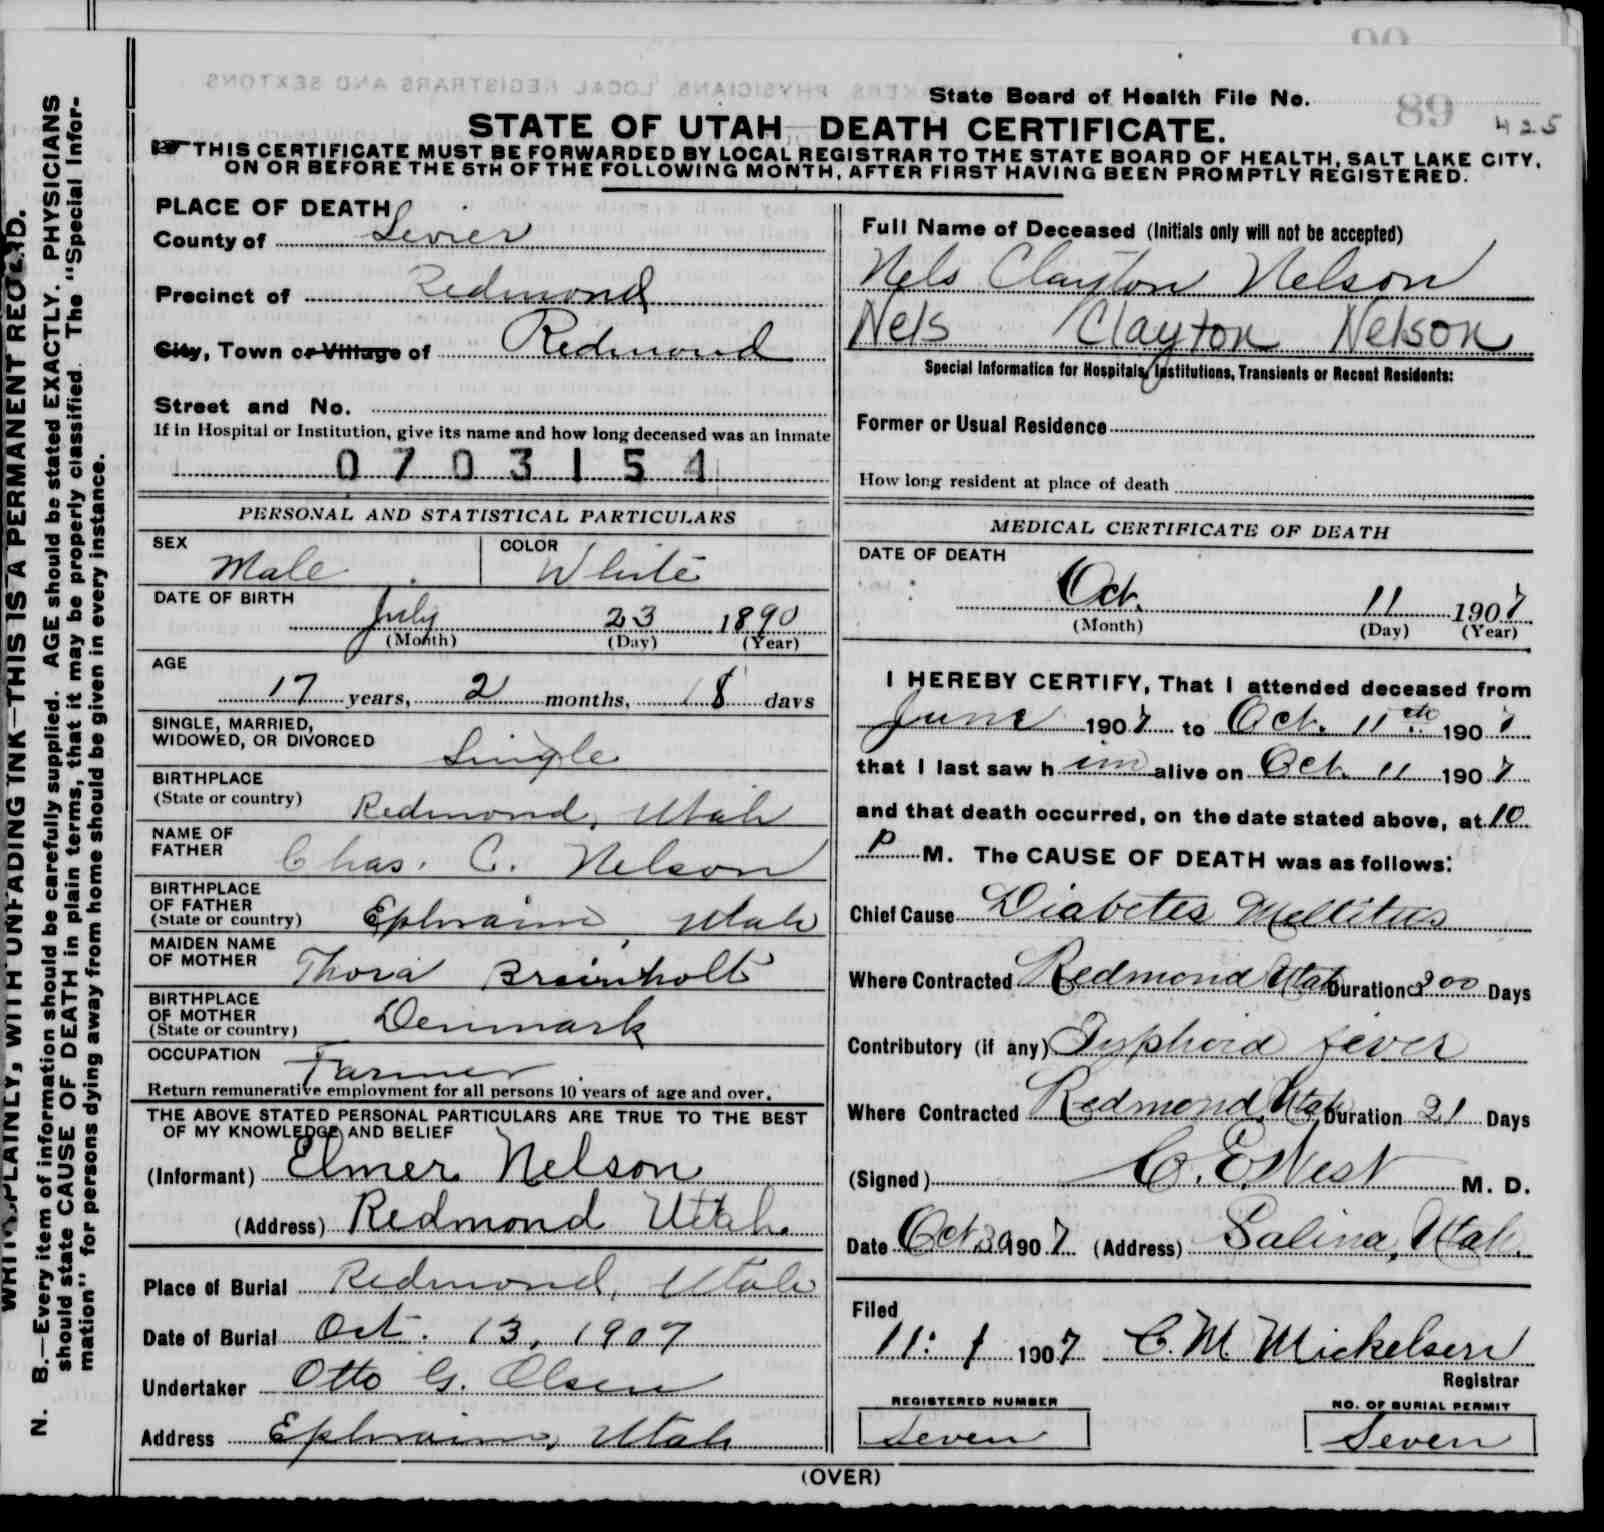 State Board of Health File No. 89 425
STATE OF UTAH—DEATH CERTIFICATE.
THIS CERTIFICATE MUST BE FORWARDED BY LOCAL REGISTRAR TO THE STATE BOARD OF HEALTH, SALT LAKE CITY,
ON OR BEFORE THE 5TH OF THE FOLLOWING MONTH, AFTER FIRST HAVING BEEN PROMPTLY REGISTERED.
WRITE PLAINLY, WITH UNFADING INK—THIS IS A PERMANENT RECORD.
N. B.—Every item of information should be carefully supplied. AGE should be stated EXACTLY. PHYSICIANS
should state CAUSE OF DEATH in plain terms, that it may be properly classified. The "Special Infor-
mation" for persons dying away from home should be given in every instance.
PLACE OF DEATH
County of Sevier
Precinct of Redmond
City, Town or Village of Redmond
Street and No.
If in Hospital or Institution, give its name and how long deceased was an inmate
0703154
PERSONAL AND STATISTICAL PARTICULARS
SEX Male COLOR White
DATE OF BIRTH
July 23 1890
(Month) (Day) (Year)
AGE
17 years, 2 months, 18 days
SINGLE, MARRIED,
WIDOWED, OR DIVORCED Single
BIRTHPLACE
(State or country) Redmond, Utah
NAME OF
FATHER Chas. C. Nelson
BIRTHPLACE
OF FATHER
(State or country) Ephraim, Utah
MAIDEN NAME
OF MOTHER Thora
BIRTHPLACE
OF MOTHER
(State or country) Denmark
OCCUPATION Farmer
Return remunerative employment for all persons 10 years of age and over.
THE ABOVE STATED PERSONAL PARTICULARS ARE TRUE TO THE BEST
OF MY KNOWLEDGE AND BELIEF
(Informant) Elmer Nelson
(Address) Redmond Utah.
Place of Burial Redmond, Utah
Date of Burial Oct. 13, 1907
Undertaker Otto G. Olsen
Address Ephraim, Utah
Full Name of Deceased (Initials only will not be accepted)
Nels Clayton Nelson
Nels Clayton Nelson
Special Information for Hospitals, Institutions, Transients or Recent Residents:
Former or Usual Residence
How long resident at place of death
MEDICAL CERTIFICATE OF DEATH
DATE OF DEATH
Oct. 11 1907
(Month) (Day) (Year)
I HEREBY CERTIFY, That I attended deceased from
June 1907 to Oct. 11th 1907
that I last saw him alive on Oct. 11 1907
and that death occurred, on the date stated above, at 10
P M. The CAUSE OF DEATH was as follows:
Chief Cause Diabetes Mellitus
Where Contracted Redmond Utah Duration 200 Days
Contributory (if any) Typhoid fever
Where Contracted Redmond, Utah Duration 21 Days
(Signed) C. E. West M. D.
Date Oct. 30 1907 (Address) Salina, Utah.
Filed
11: 1 1907 C. M. Mickelsen
Registrar
REGISTERED NUMBER
Seven
NO. OF BURIAL PERMIT
Seven
(OVER)